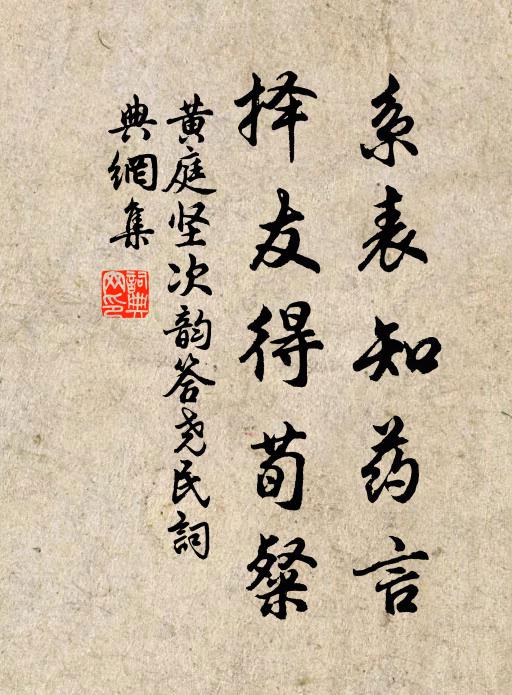 系表知药言
择友得荀粲
黄庭坚次韵答尧民詞
典網集
詞典网印